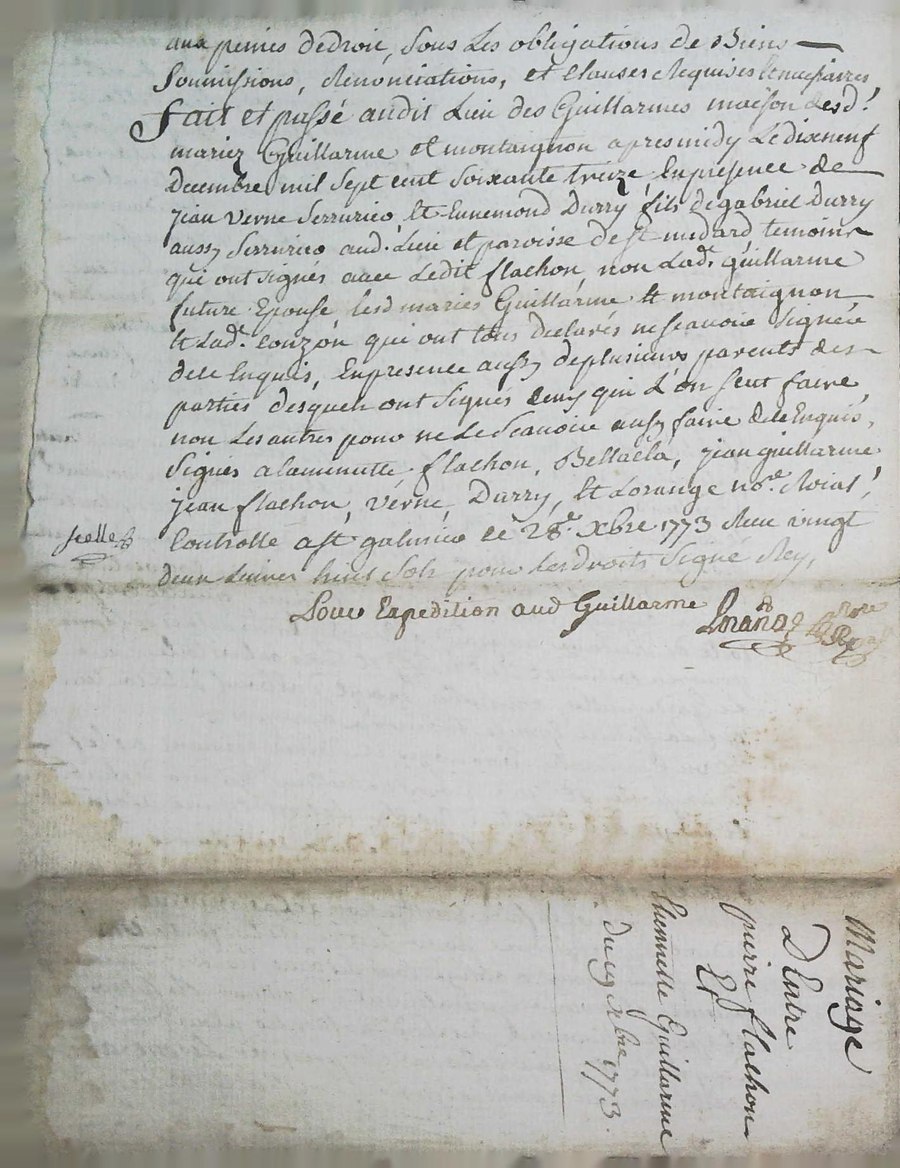 aux peines de droit, sous Les obligations de Biens
Soumissions, Renonciations, et Clauses Requises & necessaires
Fait et passé audit Lieu des Guillarmes maison desd.
mariez Guillarme et montaignon apres midy Le dixneuf
Decembre mil sept cent soixante treize En presence de
jean verne Serrurier Et Ennemond Durry fils de gabriel Durry
aussy Serrurier aud. Lieu et paroisse de St medard temoins
qui ont signés avec Ledit flachon, non Lad. guillarme
future Epouse lesd mariés Guillarme & montaignon
& Lad. couzon qui ont tous declarés ne scavoir signer
de ce Enquis, En presence aussy de plusieurs parents des
parties desquels ont signés ceux qui L'on sceut faire
non Les autres pour ne Le Scavoir aussy faire de ce Enquis,
Signés a la minutte flachon, jean guillarme
jean flachon, verne, Durry, Et Lorange no.re Roial,
Controllé a St galmier le 28.e Xbre 1773 Reçu vingt
deux Livres huit Sols pour Les droits Signé Rey,
scellé
Pour Expedition aud Guillarme
Mariage
D'Entre
pierre flachon
Et
Guillarme
du 19 Xbre 1773.